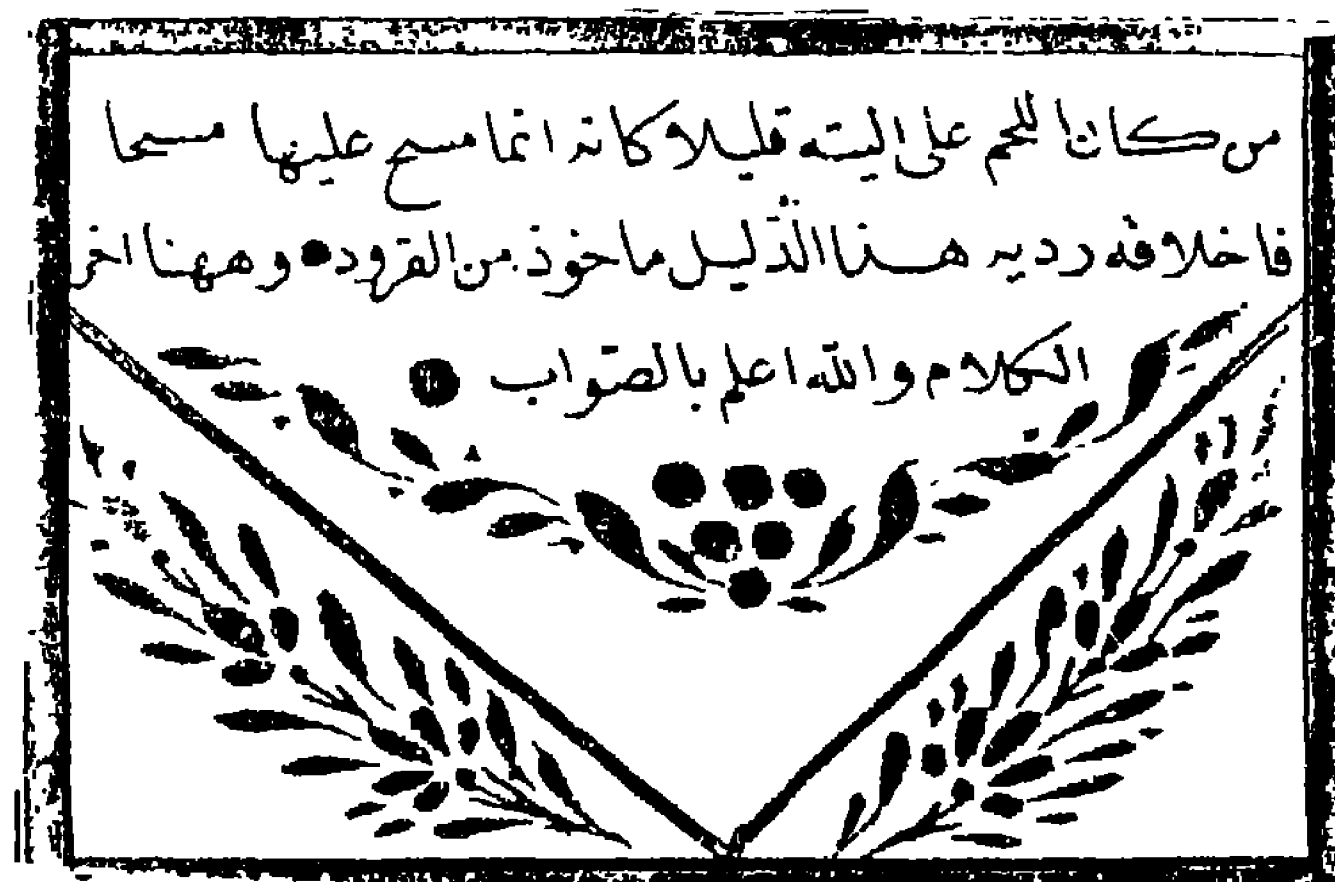 من كان اللحم على اليته قليلا كانه انما مسح عليها مسحا
فاخلاقه رديه هذا الدليل ماخوذ من القرود وههنا اخر
الكلام والله اعلم بالصواب